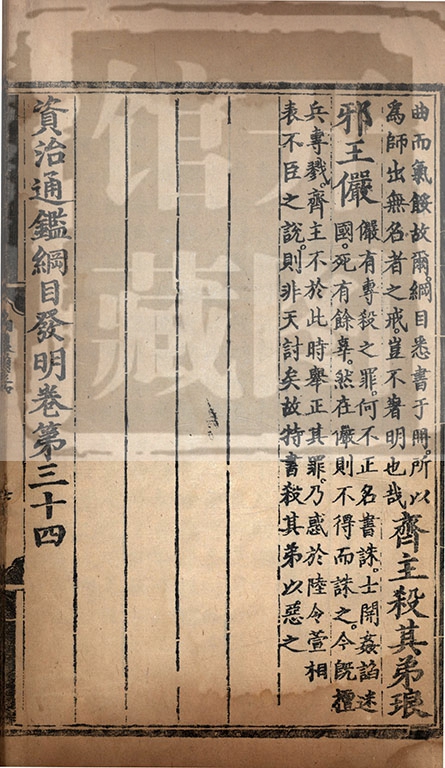 曲而氣餒故爾。綱目悉書于冊。所以
為師出無名者之戒。豈不著明也哉
齊主殺其弟琅
邪王儼
儼有專殺之罪。何不正名書誅。士開姦諂迷
國。死有餘辜。然在儼則不得而誅之。今既擅
兵專戮。齊主不於此時舉正其罪。乃惑於陸令萱相
表不臣之說。則非天討矣。故特書殺其弟以惡之
資治通鑑綱目發明卷第三十四
馆藏